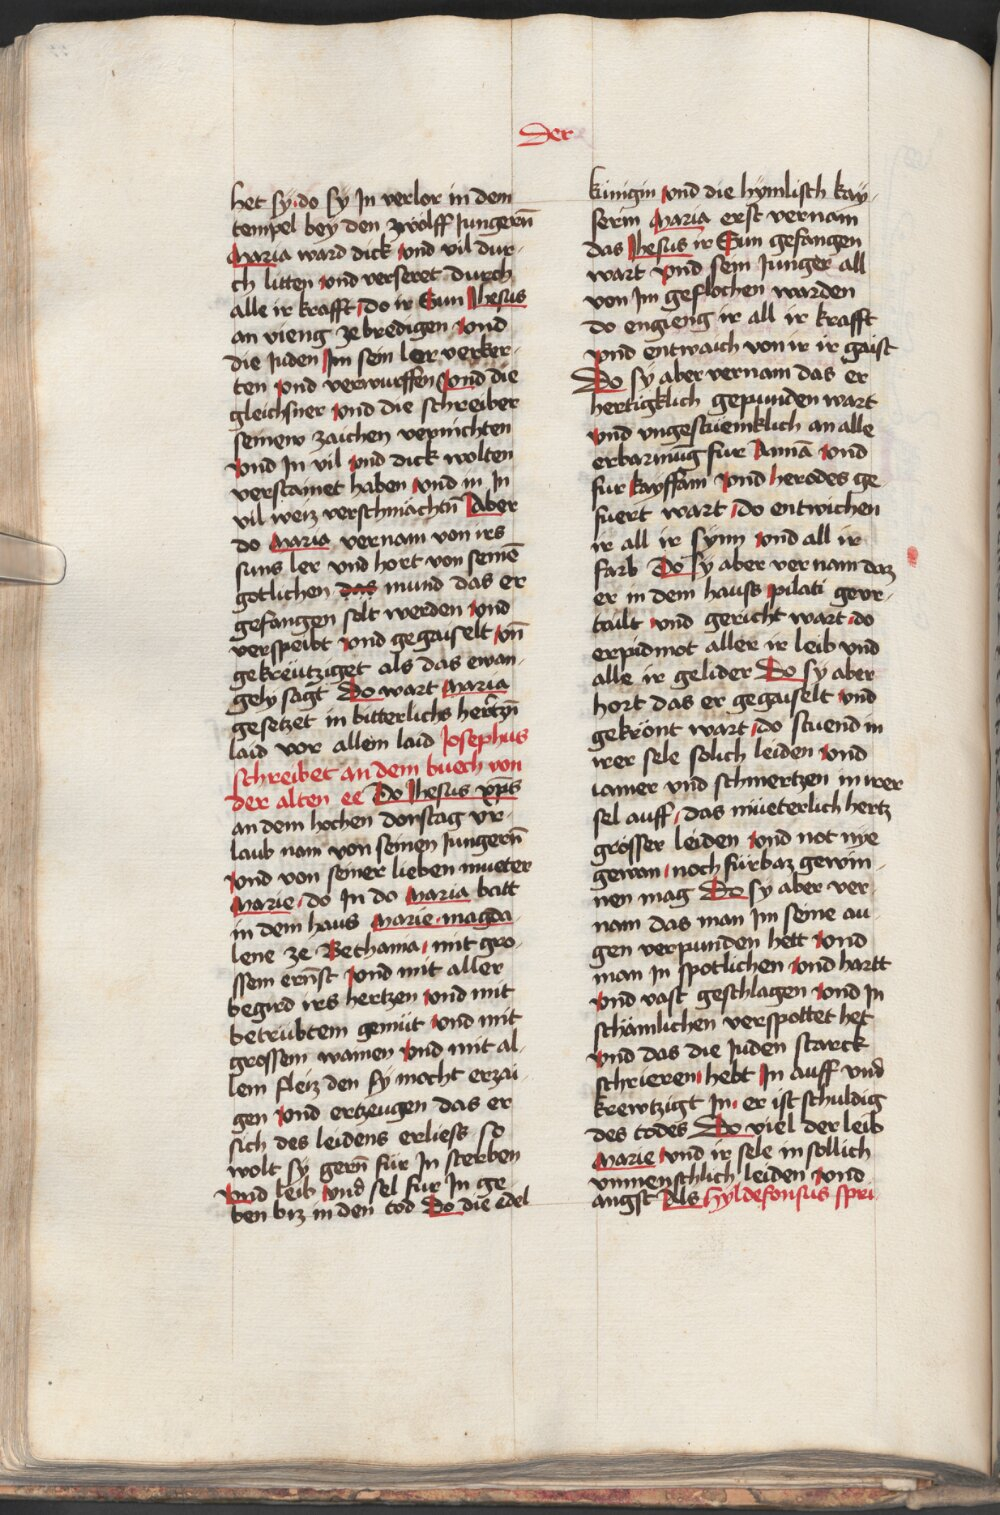 Der
het sy do sy In verlor in dem
tempel bey den zwolff Iungern̄
Maria ward dick vnd vil dur-
ch litten vnd verseret durch
alle ir krafft do ir Sun Ihesus
an vieng ze bredigen vnd
die Iuden Im sein ler verker-
ten vnd verwurffen vnd die
gleichsner vnd die schreiber
seinew zaichen vernichten
vnd In vil vnd dick wolten
verstainet haben vnd in In
vil weiz verschmachtn̄ Aber
do Maria vernam von irs
suns ler vnd hort von seinē
gotlichen das mund das er
gefangen solt werden vnd
verspeibt vnd gegaiselt vn̄
gekreutziget als das ewan-
gely sagt Do wart Maria
gesetzet in bitterlichs hertzn̄
laid vor allem laid Iosephus
schreibet an dem buech von
der alten ee Do Ihesus xp̄s
an dem hochen donstag vr-
laub nam von seinen Iungern̄
vnd von seiner lieben mueter
Marie do In do Maria batt
in dem haus Marie magda
lene ze Bethania mit gro-
ssem ern̄st vnd mit aller
begird irs hertzen vnd mit
betrübtem gemüt vnd mit
grossem wainen vnd mit al-
lem fleiz den sy mocht erzai-
gen vnd ertzeugen das er
sich des leidens erliess so
wolt sy gern̄ für In sterben
vnd leib vnd sel fur In ge
ben biz in den tod Do die edel
künigin vnd die hymlisch kay-
serin Maria erst vernam
das Ihesus ir Sun gefangen
wart vnd sein Iunger all
von Im geflochen warden
do engieng ir all ir krafft
vnd entwaich von ir ir gaist
Do sy aber vernam das er
hertigklich gepunden wart
vnd vngestüemklich an alle
erbarmūg fur Annā vnd
fur kayffam vnd herodes ge
fuert wart do entwichen
ir all ir synn vnd all ir
farb Do sy aber vernam daz
er in dem hauss pilati gevr-
tailt vnd gericht wart do
erpidmot aller ir leib vnd
alle ir gelider Do sy aber
hort das er gegaiselt vnd
gekrönt wart do stuend in
irer sele solich leiden vnd
iamer vnd schmertzen in irer
sel auff das müeterlich hertz
grösser leiden vnd not nye
gewan noch fürbaz gewin-
nen mag Do sy aber ver-
nam das man Im seine au-
gen verpunden hett vnd
man In spotlichen vnd hartt
vnd vast geschlagen vnd In
schämlichen verspottet het
vnd das die Iuden starck
schrieren hebt In auff vnd
krewtzigt In er ist schuldig
des todes Do viel der leib
Marie vnd ir sele in sollich
vnmenschlich leiden vnd
angst Als Hyldefonsus spri